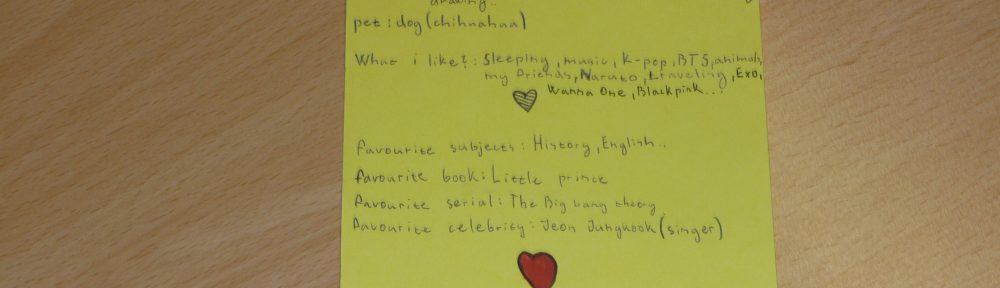 drawing..
pet: dog (chihuahua)
What i like?: Sleeping, music, K-pop, BTS, animals,
my friends, Naruto, traveling, Exo,
Wanna One, Blackpink...
favourite subjects: History, English..
favourite book: Little prince
favourite serial: The Big bang theory
favourite celebrity: Jeon Jungkook (singer)